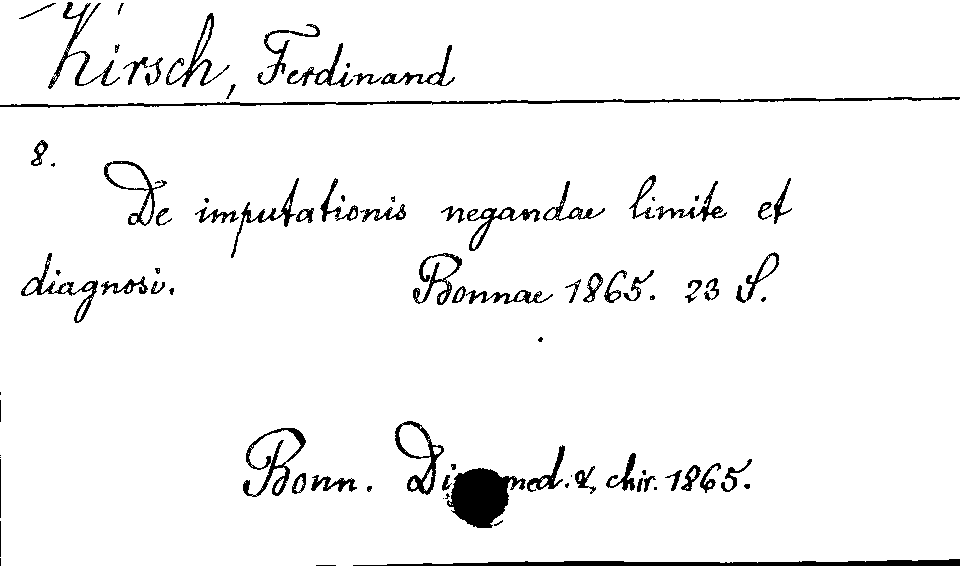 Hirsch, Ferdinand
8.
De imputationis negandae limite et
diagnosi. Bonnae 1865. 23 S.
Bonn. med. &, chir. 1865.